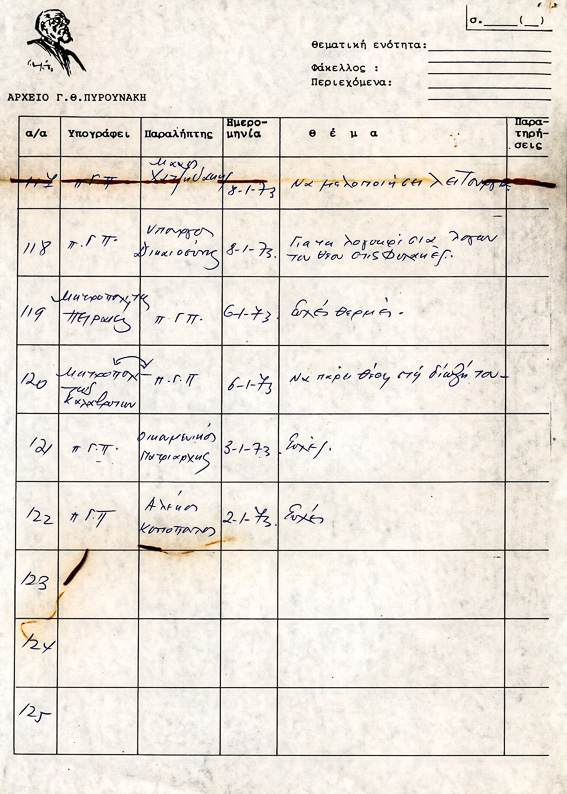 σ.____(__)
Θεματική ενότητα:
Φάκελλος :
Περιεχόμενα:
ΑΡΧΕΙΟ Γ.Θ.ΠΥΡΟΥΝΑΚΗ
α/α Υπογράφει Παραλήπτης Ημερο-μηνία θ έ μ α Παρα-τηρή-σεις
117 π Γ Π 8-1-73 Να μελοποιήσει λειτουργία
118 π. Γ Π. Υπουργός
Δικαιοσύνης 8-1-73. Για τα
του Θεού στις Φυλακές.
119 Μητροπολίτης
Πειραιώς π. Γ Π. 6-1-73. Ευχές θερμές.
120 Μητροπολί-
της
Καλαβρύτων π. Γ Π 6-1-73 Να πάρει θέση στή δίωξή του
121 π Γ. Π. Οικουμενικός
Πατριάρχης 3-1-73. Ευχές.
122 π Γ. Π Αλέκος
2-1-73. Ευχές
123
124
125